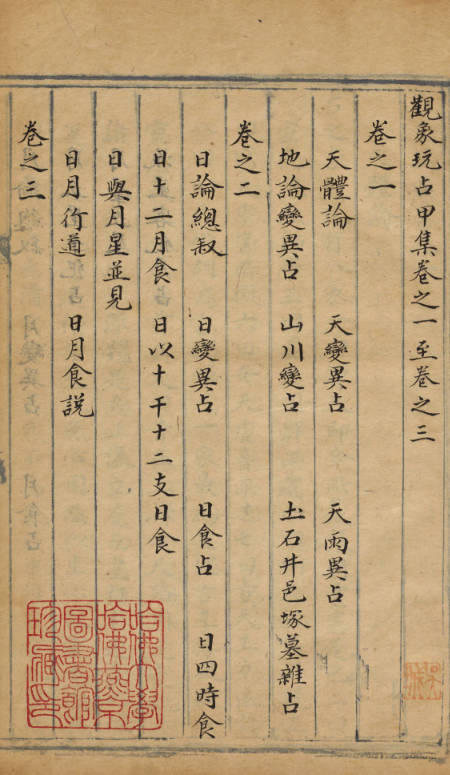 觀象玩占甲集卷之一至卷之三
卷之一
天體論 天變異占 天雨異占
地論變異占 山川變占 土石井邑塚墓雜占
卷之二
日論總叙 日變異占 日食占 日四時食
日十二月食 日以十干十二支日食
日與月星並見
日月行道 日月食説
卷之三
哈佛大學
哈佛燕京
圖書館
珍藏印